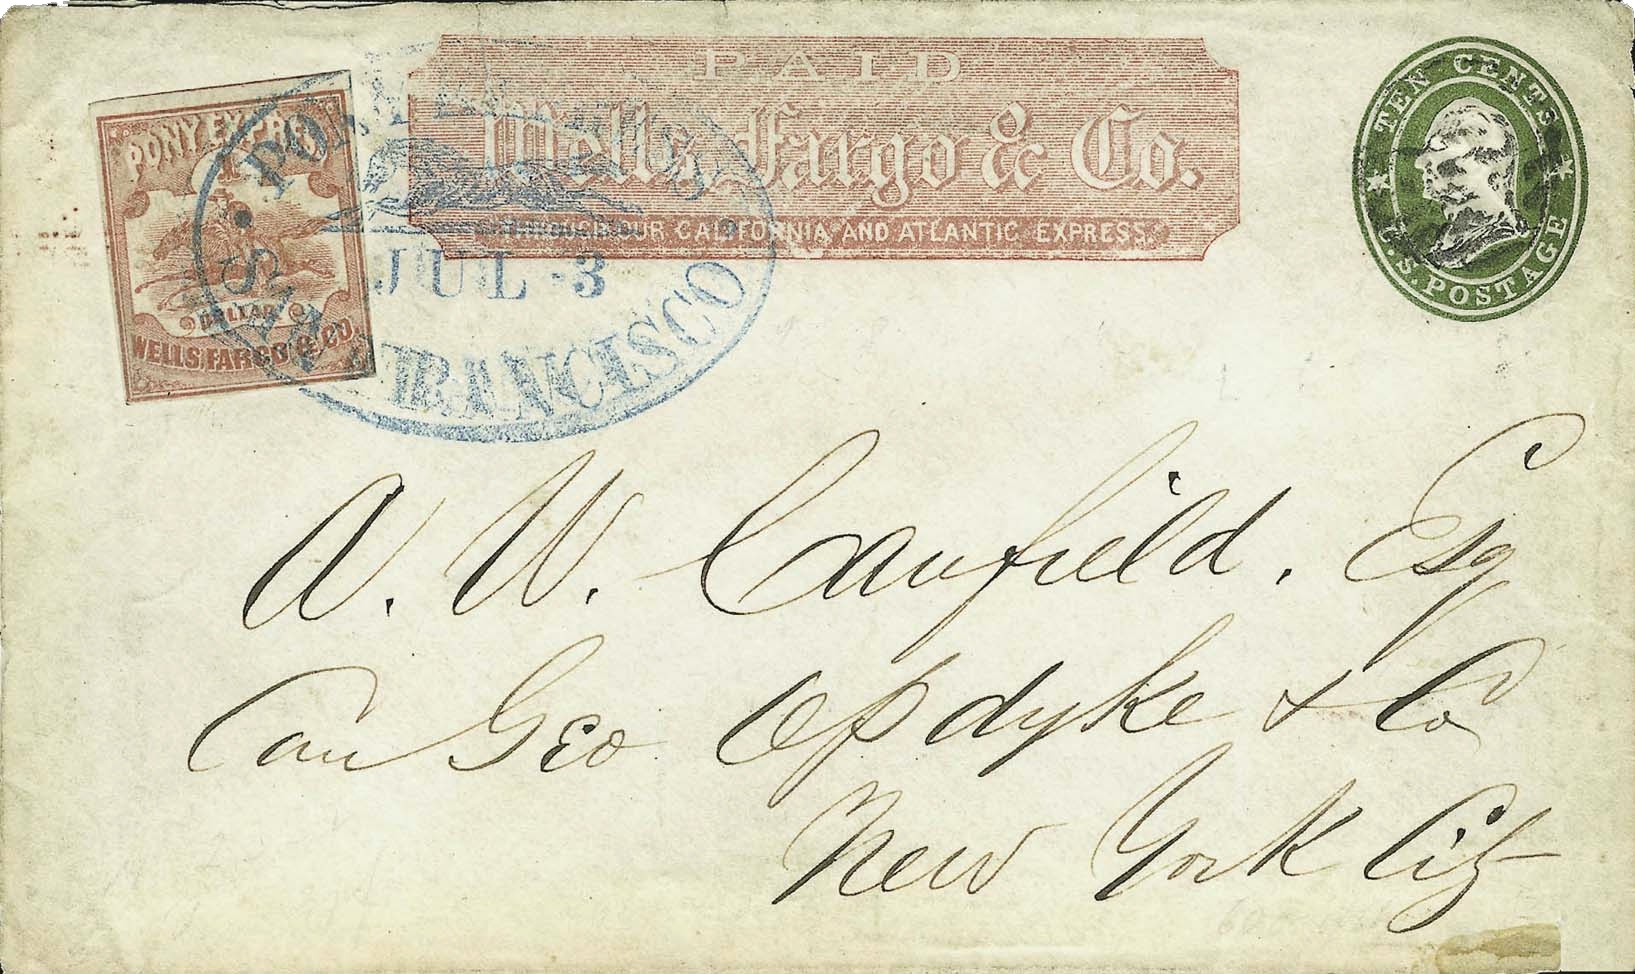 PAID
Wells, Fargo & Co.
THROUGH OUR CALIFORNIA AND ATLANTIC EXPRESS.
PONY EXPRESS
DOLLAR
WELLS, FARGO & CO.
PONY EXPRESS
JUL 3
SAN FRANCISCO
TEN CENTS
U.S. POSTAGE
A. W. Canfield, Esq
Care Geo Opdyke & Co
New York City